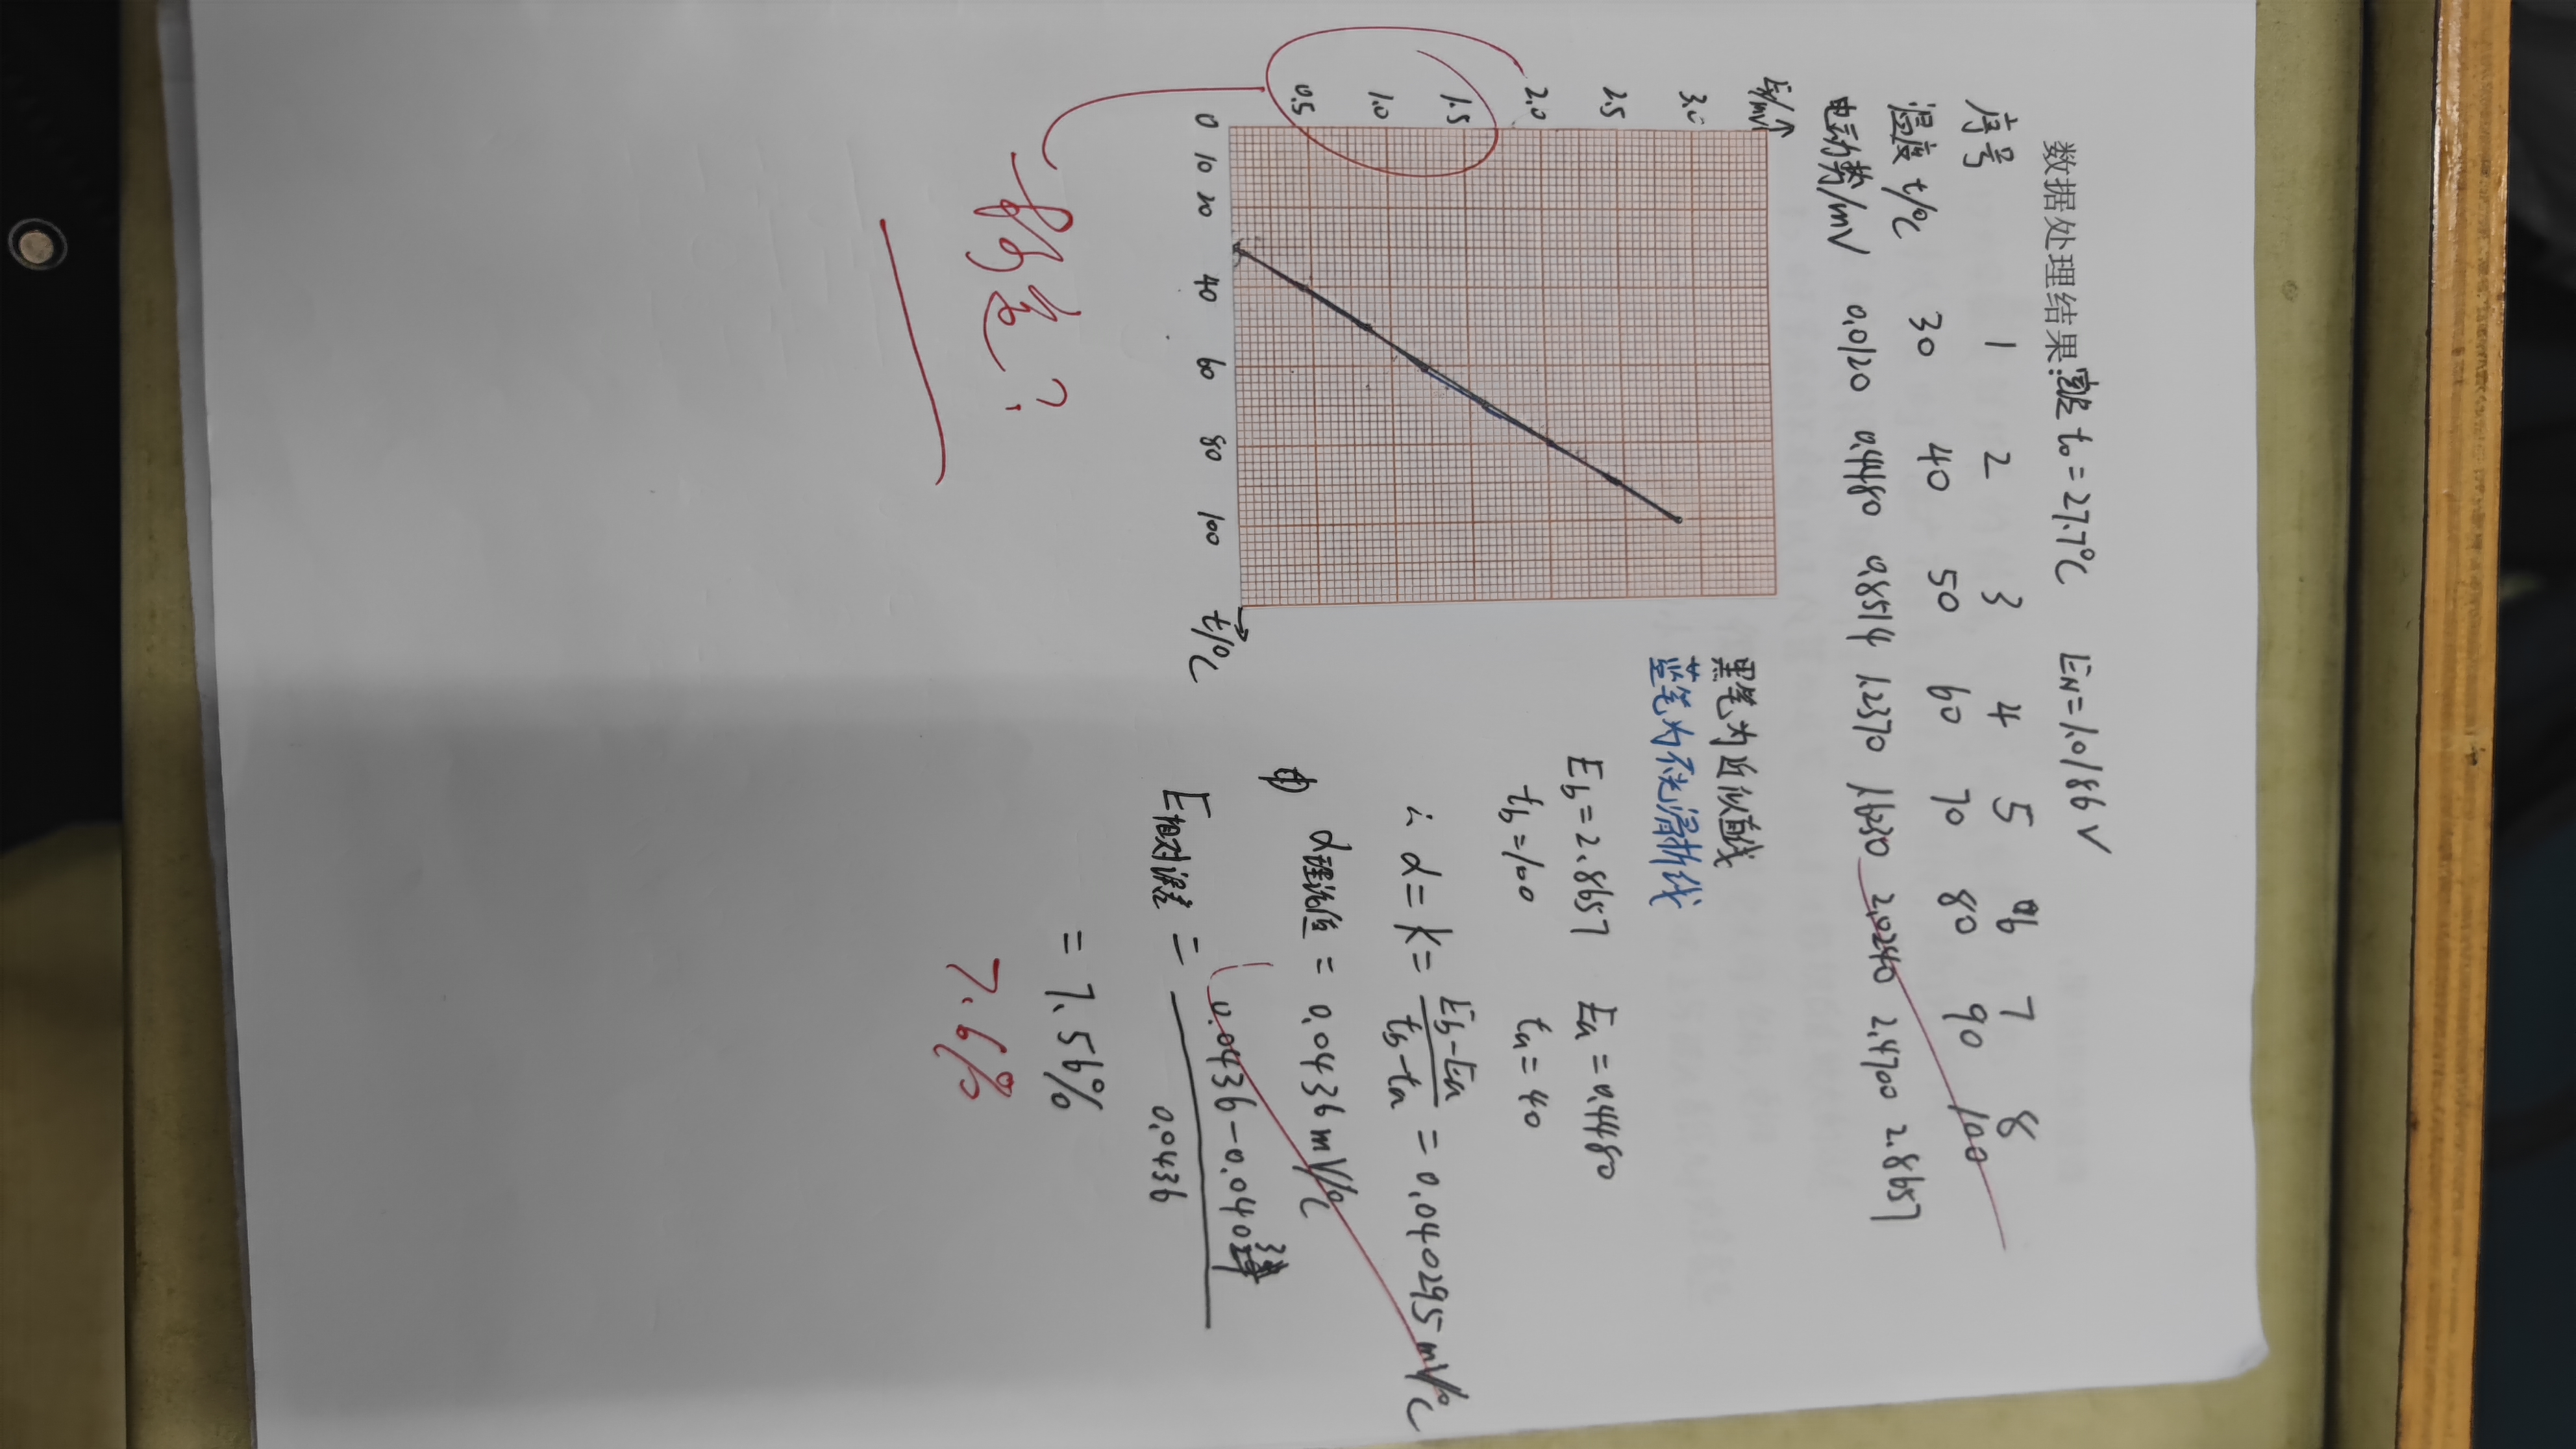 数据处理结果:室温 t₀ = 27.7℃ E_N = 1.0186 V
序号 1 2 3 4 5 6 7 8
温度 t/℃ 30 40 50 60 70 80 90 100
电动势/mV 0.0120 0.4480 0.8514 1.2370 1.6230 2.0240 2.4700 2.8657
E/mV
3.0
2.5
2.0
1.5
1.0
0.5
0 10 20 40 60 80 100 t/℃
黑笔为近似直线
蓝笔为不光滑折线
E_b = 2.8657 E_a = 0.4480
t_b = 100 t_a = 40
∴ α = k = (E_b - E_a)/(t_b - t_a) = 0.040295 mV/℃
α理论值 = 0.0436 mV/℃
E相对误差 = (0.0436 - 0.0403)/0.0436
= 7.56%
7.6%